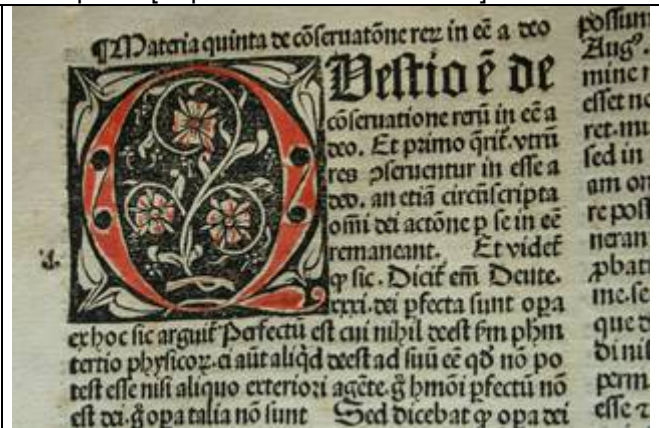 ¶Materia quinta de cõseruatõne reꝝ in eẽ a deo
Questio ẽ de
cõseruatione rerũ in eẽ a
deo. Et primo q̃rit̃. vtrũ
res ↄseruentur in esse a
deo. an etiã circũscripta
om̃i dei actõne p se in eẽ
remaneant. Et videt̃
ꝙ sic. Dicit̃ em̃ Deute.
xxxi. dei ꝑfecta sunt oꝑa
ex hoc sic arguit̃ Perfectũ est cui nihil deest ẜm pħm
tertio physicoꝝ. ci aũt aliq̇d deest ad suũ eẽ qđ nõ po
test esse nisi aliquo exteriori agẽte. g̊ hmõi ꝑfectũ nõ
est dei. g̊ oꝑa talia nõ sunt Sed dicebat ꝙ oꝑa dei
possum
Augꝰ.
mine r
esset ne
ret. mu
sed in
am on
re post
neran
ꝓbati
me. se
que d
di nil
perm
esse ⁊